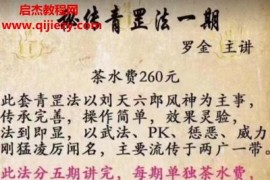 启杰教程网
www.qijiejc.com
秘传青罡法一期
罗金 主讲
茶水费260元
此套青罡法以刘天六郎风神为主事,
传承完善,操作简单,效果灵验,
法到即显,以武法、PK、惩恶、威力
刚猛凌厉闻名,主要流传于两广一带。
此法分五期讲完,每期单独茶水费,